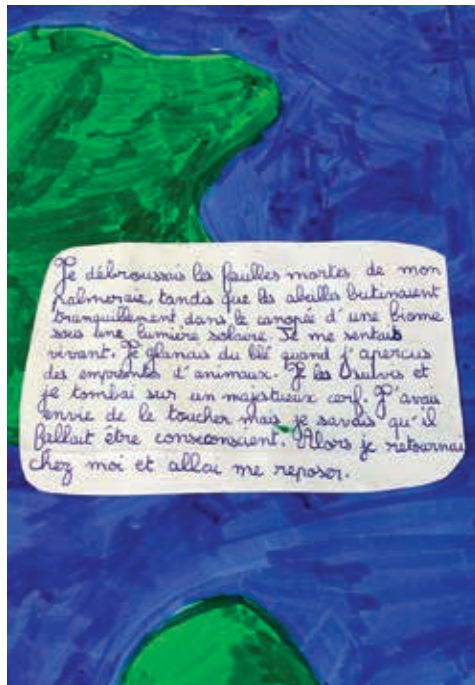 Je débroussais les feuilles mortes de mon
palmeraie, tandis que les abeilles butinaient
tranquillement dans le canopée d'une biome
sous une lumière solaire. Je me sentais
vivant. Je glanais du blé quand j'aperçus
des empreintes d'animaux. Je les suivis et
je tombai sur un majestueux cerf. J'avais
envie de le toucher mais je savais qu'il
fallait être consconscient. Alors je retournai
chez moi et allai me reposer.